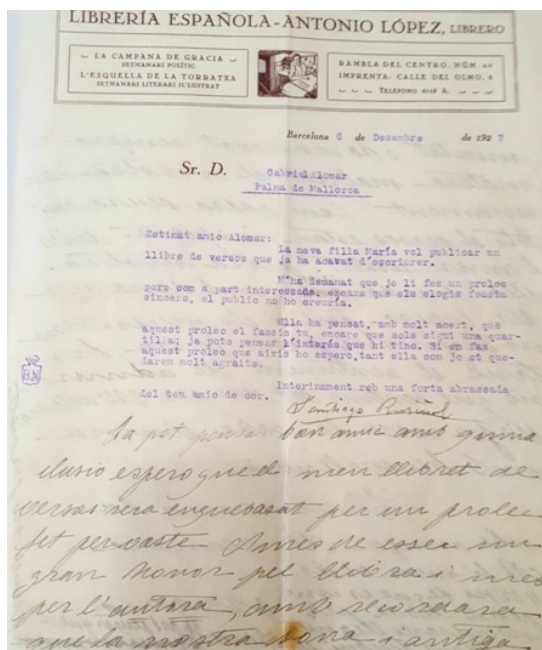 LIBRERÍA ESPAÑOLA-ANTONIO LÓPEZ, LIBRERO
LA CAMPANA DE GRACIA
SETMANARI POLÍTIC
L'ESQUELLA DE LA TORRATXA
SETMANARI LITERARI IL'LUSTRAT
RAMBLA DEL CENTRO, NÚM. 20
IMPRENTA: CALLE DEL OLMO, 8
TELÉFONO 4115 A.
Barcelona 6 de Desembre de 1927
Sr. D. Gabriel Alomar
Palma de Mallorca
Estimat amic Alomar:
La meva filla María vol publicar un
llibre de versos que ja ha acavat d'escriurer.
M'ha demanat que jo li fez un prolec
pero com a part interessada, encare que els elogis fossin
sincers, el public no ho creuria.
Ella ha pensat, amb molt acert, que
aquest prolec el fassis tu, encare que sols sigui una quar-
tilla; ja pots pensar l'interés que hi tinc. Si em fas
aquest prolec que aixis ho espero, tant ella com jo et que-
darem molt agraits.
Interinament reb una forta abrassada
del teu amic de cor.
Santiago Rusiñol
Ja pot pensar bon amic amb quina
ilusio espero que el meu llibret de
versos sera encapsat per un prolec
fet per voste
gran honor pel llibre i mes
per l'autora, amb recordara
que la nostra bona i antiga